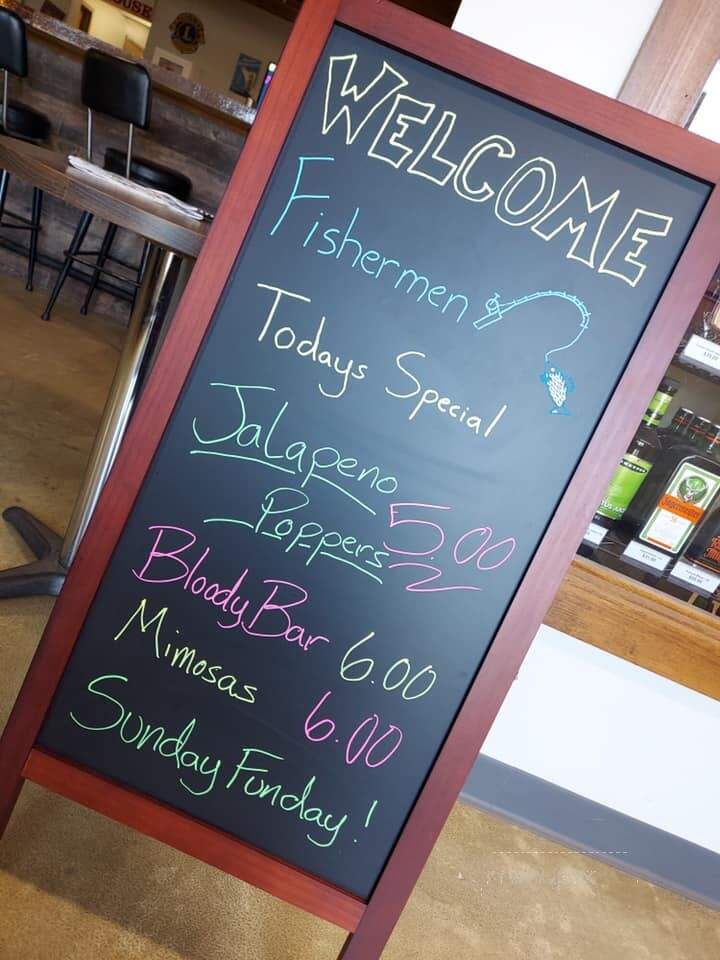 WELCOME
Fishermen
Todays Special
Jalapeno
Poppers 5.00
Bloody Bar 6.00
Mimosas 6.00
Sunday Funday!